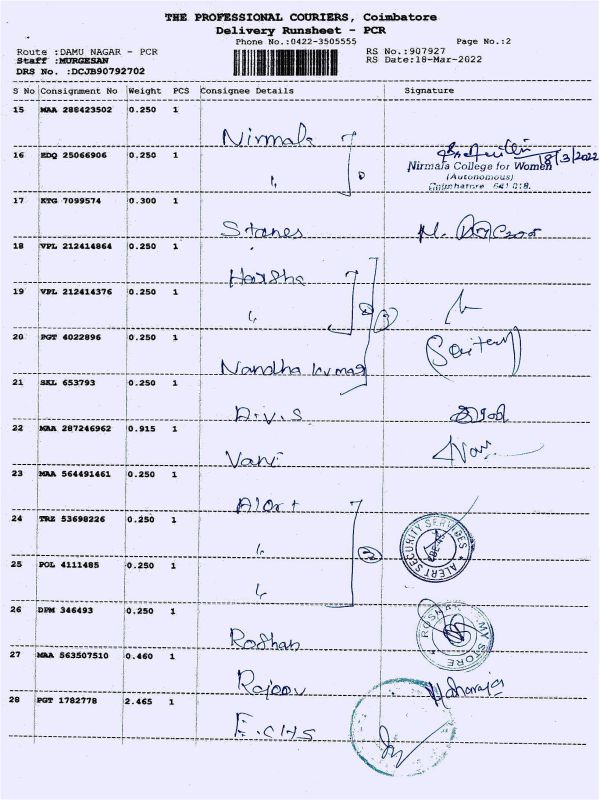 THE PROFESSIONAL COURIERS, Coimbatore
Delivery Runsheet - PCR
Phone No.:0422-3505555
Page No.:2
Route :DAMU NAGAR - PCR
RS No.:907927
Staff :MURGESAN
RS Date:18-Mar-2022
DRS No. :DCJB90792702
S No Consignment No Weight PCS Consignee Details Signature
15 MAA 288423502 0.250 1
Nirmala
16 EDQ 25066906 0.250 1
18/3/2022
Nirmala College for Women
(Autonomous)
Coimbatore 641 018.
17 KTG 7099574 0.300 1
Stanes
18 VPL 212414864 0.250 1
Harsha
19 VPL 212414376 0.250 1
20 PGT 4022896 0.250 1
Nandha kumar
21 SKL 653793 0.250 1
D.V.S
22 MAA 287246962 0.915 1
Vani
Vani
23 MAA 564491461 0.250 1
Alert
24 TRZ 53698226 0.250 1
ALERT SECURITY SERVICES
25 POL 4111485 0.250 1
26 DPM 346493 0.250 1
Roshan
27 MAA 563507510 0.460 1
Rajeev
28 PGT 1782778 2.465 1
E.CHS